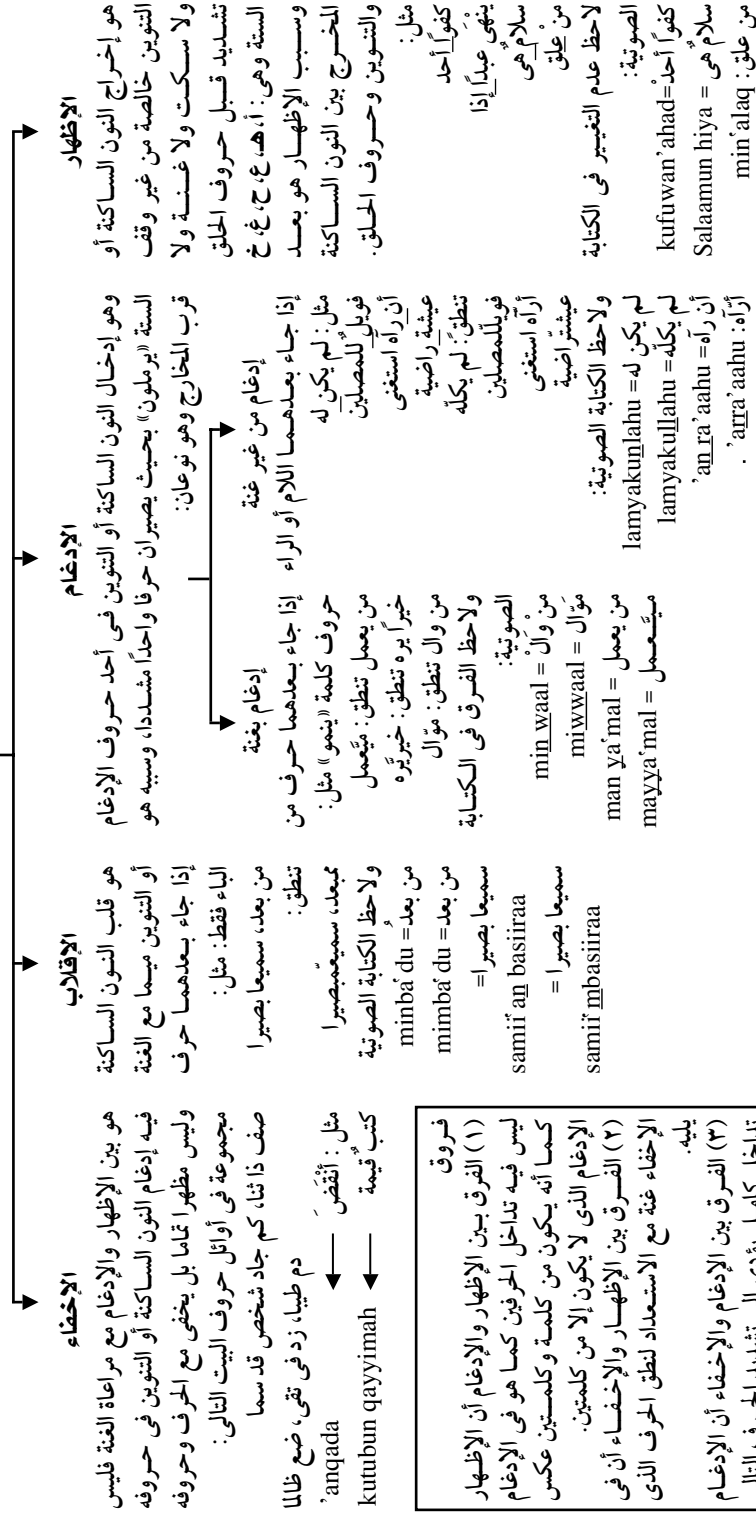 الإظهار
هو إخراج النون الساكنة أو
التنوين خالصة من غير وقف
ولا سكت ولا غنة ولا
تشديد قبل حروف الحلق
الستة وهى: أ، هـ، ع، ح، غ، خ
وسبب الإظهار هو بعد
المخرج بين النون الساكنة
والتنوين وحروف الحلق.
مثل:
كفواً أحد
ينْهَى عبداً إذا
من علق
سلامٌ هى
لاحظ عدم التغيير فى الكتابة
الصوتية:
كفواً أحدْ=kufuwan'ahad
سلامٌ هى = Salaamun hiya
من علق : min ʿalaq
الإدغام
وهو إدخال النون الساكنة أو التنوين فى أحد حروف الإدغام
الستة «يرملون» بحيث يصيران حرفا واحدًا مشددا، وسببه هو
قرب المخارج وهو نوعان:
إدغام من غير غنة
إذا جاء بعدهما اللام أو الراء
مثل: لم يكن له
فويلٌ للمصلين
أن رآه استغنى
عيشةٍ راضية
تنطق: لم يكلّه
فويلُلمصلين
أرّآه استغنى
عيشتِرّاضية
ولاحظ الكتابة الصوتية:
لم يكن له= lamyakunlahu
لم يكلّه= lamyakullahu
أن رآه= 'an ra'aahu
أرّآه: 'arra'aahu .
إدغام بغنة
إذا جاء بعدهما حرف من
حروف كلمة «ينمو» مثل:
من يعمل تنطق: ميّعمل
خيراً يره تنطق: خيريّره
من وال تنطق: موّال
ولاحظ الفرق فى الكتابة
الصوتية:
منْ وَالْ = min waal
موّال = miwwaal
من يعمل = man yaʿmal
ميّعمل = mayyaʿmal
الإقلاب
هو قلب النون الساكنة
أو التنوين ميما مع الغنة
إذا جاء بعدهما حرف
الباء فقط: مثل:
من بعد، سميعا بصيرا
تنطق:
ممبعد، سميعمبصيرا
ولاحظ الكتابة الصوتية
من بعدُ= minbaʿdu
من بعد= mimbaʿdu
سميعا بصيرا=
samiiʿan basiiraa
سميعا بصيرا =
samiiʿmbasiiraa
الإخفاء
هو بين الإظهار والإدغام مع مراعاة الغنة فليس
فيه إدغام النون الساكنة أو التنوين فى حروفه
وليس مظهرا تماما بل يخفى مع الحرف وحروفه
مجموعة فى أوائل حروف البيت التالى:
صف ذا ثنا، كم جاد شخص قد سما
دم طيبا، زد فى تقى، ضع ظالما
مثل : أَنْقَضَ 'anqada
كتبٌ قيمة kutubun qayyimah
فروق
(١) الفرق بين الإظهار والإدغام أن الإظهار
ليس فيه تداخل الحرفين كما هو فى الإدغام
كما أنه يكون من كلمة وكلمتين عكس
الإدغام الذى لا يكون إلا من كلمتين.
(٢) الفرق بين الإظهار والإخفاء أن فى
الإخفاء غنة مع الاستعداد لنطق الحرف الذى
يليه.
(٣) الفرق بين الإدغام والإخفاء أن الإدغام